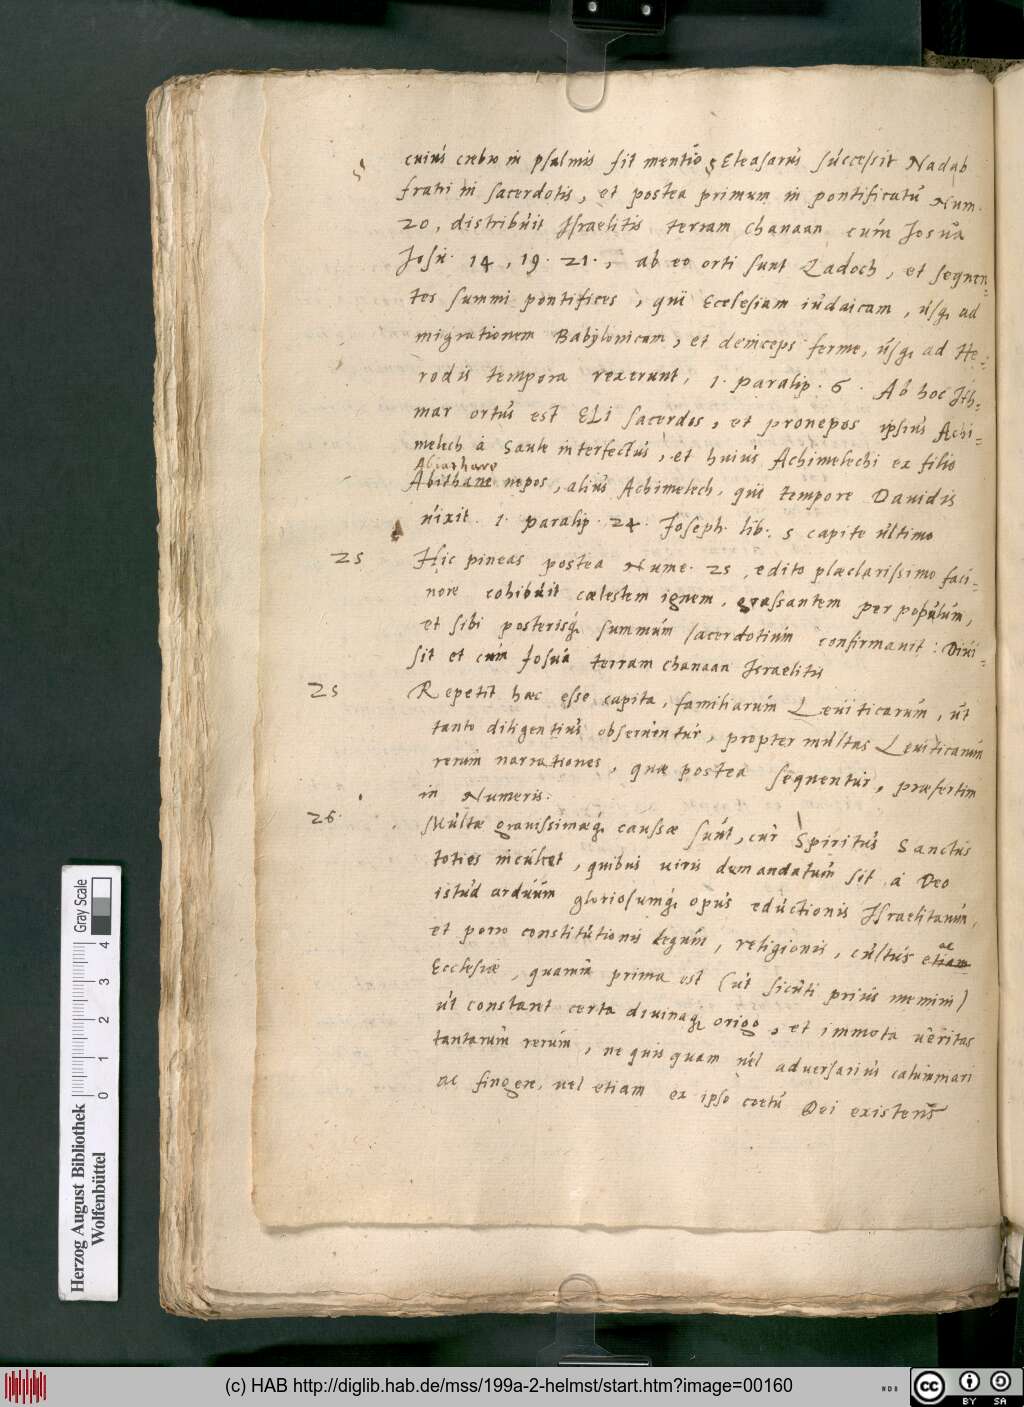 cuius crebro in psalmis fit mentio, Eleasarus successit Nadab
fratri in sacerdotis, et postea primum in pontificatu Num.
20, distribuit Israelitis terram Chanaan cum Iosua
Iosu. 14, 19. 21., ab eo orti sunt Zadoch, et sequen=
tes summi pontifices, qui Ecclesiam iudaicam, usq. ad
migrationem Babylonicam, et deinceps ferme, usq. ad He=
rodis tempora rexerunt, 1. Paralip. 6. Ab hoc Ith=
mar ortus est ELi sacerdos, et pronepos ipsius Achi=
melech à Saule interfectus, et huius Achimelechi ex filio
Abiathare
Abithane nepos, alius Achimelech, qui tempore Dauidis
uixit. 1. Paralip. 24. Joseph. lib. 5 capite ultimo
25 Hic pineas postea Nume. 25, edito plæclarissimo faci=
nore cohibuit cœlestem ignem, grassantem per populum,
et sibi posterisq. summum sacerdotium confirmauit: Diui=
sit et cum Josua terram chanaan Israelitis
25 Repetit hæc esse capita, familiarum Leuiticarum, ut
tanto diligentius obseruentur, propter multas Leuiticarum
rerum narrationes, quæ postea sequentur, præsertim
in Numeris.
26. Multæ grauissimæq. caussæ sunt, cur Spiritus Sanctus
toties inculcet, quibus uiris demandatum sit à Deo
istud arduum gloriosumq. opus eductionis Israelitarum,
et porro constitutionis legum, religionis, cultus etiam
ac
Ecclesiæ, quarum prima est (ut sicuti prius memini)
ut constant certa diuinaq. origo, et immota ueritas
tantarum rerum, ne quis quam uel aduersarius calumniari
ac fingere, uel etiam ex ipso coetu Dei existens
Gray Scale
4 3 2 1 0
Herzog August Bibliothek
Wolfenbüttel
(c) HAB http://diglib.hab.de/mss/199a-2-helmst/start.htm?image=00160
cc BY SA